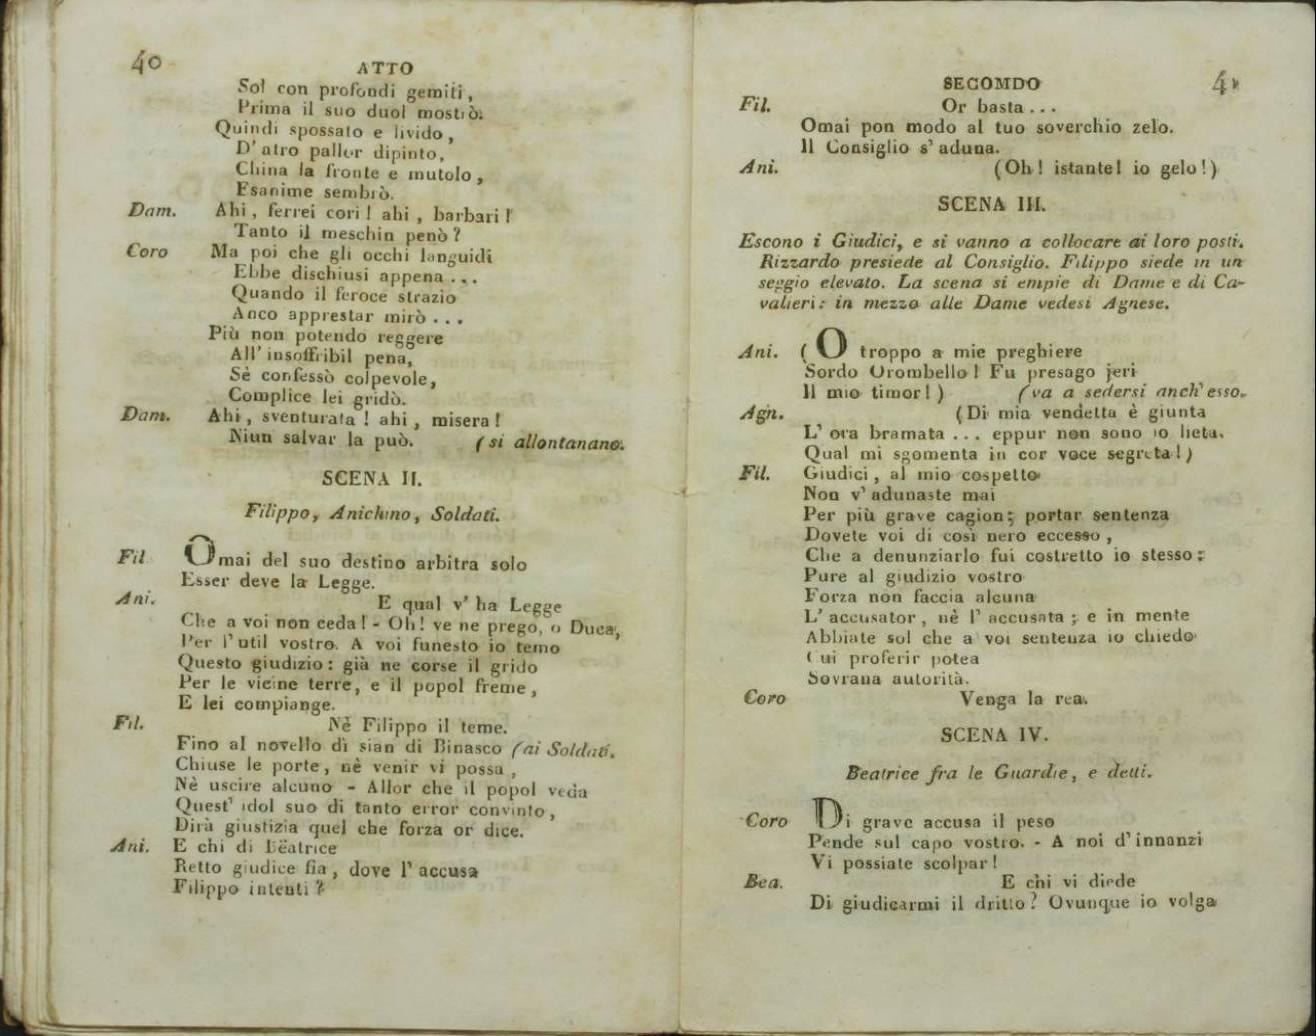 40
ATTO
Sol con profondi gemiti,
Prima il suo duol mostrò:
Quindi spossato e livido,
D'atro pallor dipinto,
China la fronte e mutolo,
Esanime sembrò.
Dam. Ahi, ferrei cori! ahi, barbari!
Tanto il meschin penò?
Coro Ma poi che gli occhi languidi
Ebbe dischiusi appena...
Quando il feroce strazio
Anco apprestar mirò...
Più non potendo reggere
All'insoffribil pena,
Sè confessò colpevole,
Complice lei gridò.
Dam. Ahi, sventurata! ahi, misera!
Niun salvar la può. (si allontanano.
SCENA II.
Filippo, Anichino, Soldati.
Fil Omai del suo destino arbitra solo
Esser deve la Legge.
Ani. E qual v'ha Legge
Che a voi non ceda! - Oh! ve ne prego, o Duca,
Per l'util vostro. A voi funesto io temo
Questo giudizio: già ne corse il grido
Per le vicine terre, e il popol freme,
E lei compiange.
Fil. Nè Filippo il teme.
Fino al novello dì sian di Binasco (ai Soldati.
Chiuse le porte, nè venir vi possa,
Nè uscire alcuno - Allor che il popol veda
Quest'idol suo di tanto error convinto,
Dirà giustizia quel che forza or dice.
Ani. E chi di Bëatrice
Retto giudice fia, dove l'accusa
Filippo intenti?
SECOMDO
4
Fil. Or basta...
Omai pon modo al tuo soverchio zelo.
Il Consiglio s'aduna.
Ani. (Oh! istante! io gelo!)
SCENA III.
Escono i Giudici, e si vanno a collocare ai loro posti.
Rizzardo presiede al Consiglio. Filippo siede in un
seggio elevato. La scena si empie di Dame e di Ca-
valieri: in mezzo alle Dame vedesi Agnese.
Ani. (O troppo a mie preghiere
Sordo Orombello! Fu presago jeri
Il mio timor!) (va a sedersi anch'esso.
Agn. (Di mia vendetta è giunta
L'ora bramata... eppur non sono io lieta.
Qual mi sgomenta in cor voce segreta!)
Fil. Giudici, al mio cospetto
Non v'adunaste mai
Per più grave cagion; portar sentenza
Dovete voi di così nero eccesso,
Che a denunziarlo fui costretto io stesso:
Pure al giudizio vostro
Forza non faccia alcuna
L'accusator, nè l'accusata; e in mente
Abbiate sol che a voi sentenza io chiedo
Cui proferir potea
Sovrana autorità.
Coro Venga la rea.
SCENA IV.
Beatrice fra le Guardie, e detti.
Coro Di grave accusa il peso
Pende sul capo vostro. - A noi d'innanzi
Vi possiate scolpar!
Bea. E chi vi diede
Di giudicarmi il dritto? Ovunque io volga